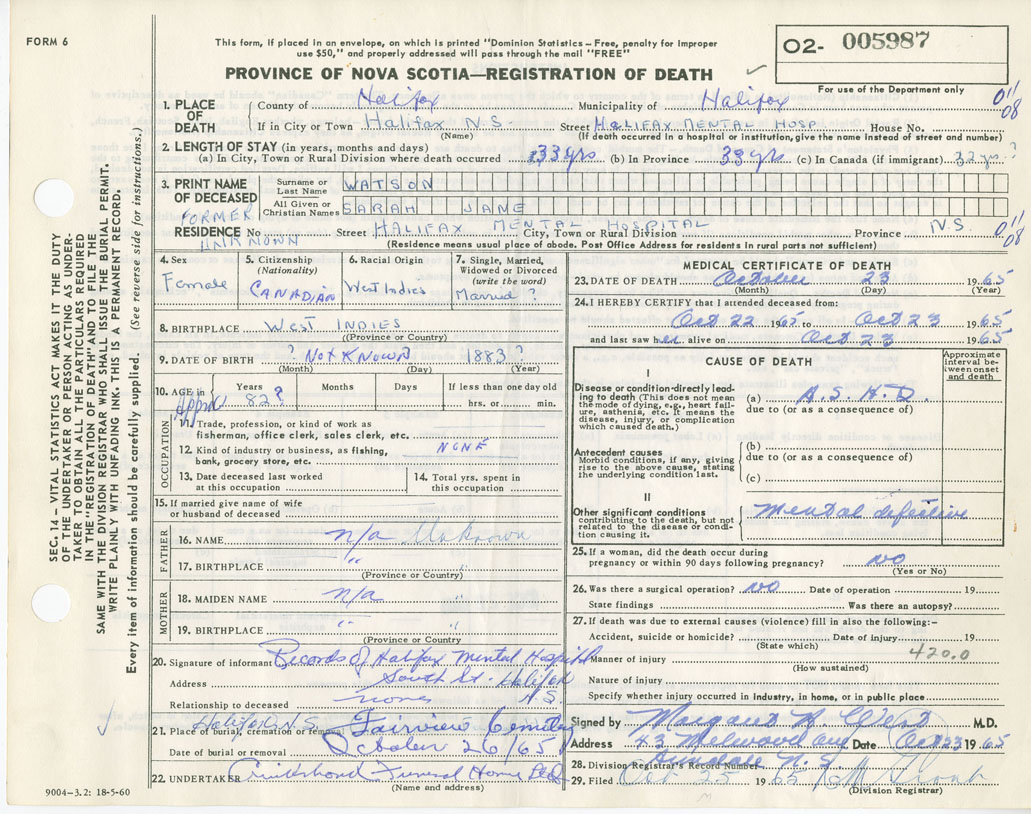 FORM 6
This form, if placed in an envelope, on which is printed "Dominion Statistics – Free, penalty for improper
use $50," and properly addressed will pass through the mail "FREE"
O2- 005987
PROVINCE OF NOVA SCOTIA—REGISTRATION OF DEATH
For use of the Department only
1. PLACE OF DEATH
County of Halifax Municipality of Halifax
011 08
If in City or Town Halifax N.S. Street HALIFAX MENTAL HOSP House No.
(Name) (If death occurred in a hospital or institution, give the name instead of street and number)
2. LENGTH OF STAY (in years, months and days)
(a) In City, Town or Rural Division where death occurred 33 yrs (b) In Province 33 yrs (c) In Canada (if immigrant) 32 yrs ?
3. PRINT NAME OF DECEASED
Surname or Last Name WATSON
All Given or Christian Names SARAH JANE
FORMER
RESIDENCE No Street HALIFAX MENTAL HOSPITAL City, Town or Rural Division Province N.S. 011 08
UNKNOWN
(Residence means usual place of abode. Post Office Address for residents in rural parts not sufficient)
4. Sex
Female
5. Citizenship
(Nationality)
CANADIAN
6. Racial Origin
West Indies
7. Single, Married,
Widowed or Divorced
(write the word)
Married ?
8. BIRTHPLACE WEST INDIES
(Province or Country)
9. DATE OF BIRTH ? Not Known 1883 ?
(Month) (Day) (Year)
10. AGE in Years Months Days If less than one day old
Approx 82 ? hrs. or min.
OCCUPATION
11. Trade, profession, or kind of work as
fisherman, office clerk, sales clerk, etc.
12. Kind of industry or business, as fishing, NONE
bank, grocery store, etc.
13. Date deceased last worked
at this occupation
14. Total yrs. spent in
this occupation
15. If married give name of wife
or husband of deceased
FATHER
16. NAME n/a Unknown
17. BIRTHPLACE " "
(Province or Country)
MOTHER
18. MAIDEN NAME n/a
19. BIRTHPLACE " "
(Province or Country
20. Signature of informant Records of Halifax Mental Hospital
Address South St. Halifax
N.S.
Relationship to deceased none
Halifax N.S.
21. Place of burial, cremation or removal Fairview Cemetery
Date of burial or removal October 26/65
22. UNDERTAKER Cruikshank Funeral Home Ltd
(Name and address)
9004–3.2: 18-5-60
MEDICAL CERTIFICATE OF DEATH
23. DATE OF DEATH October 23 1965
(Month) (Day) (Year)
24. I HEREBY CERTIFY that I attended deceased from:
Oct 22 1965 to Oct 23 1965
and last saw her alive on Oct 23 1965
CAUSE OF DEATH
Approximate interval between onset and death
I
Disease or condition directly leading to death (This does not mean
the mode of dying, e.g., heart failure, asthenia, etc. It means the
disease, injury, or complication
which caused death.)
(a) A.S.H.D.
due to (or as a consequence of)
Antecedent causes
Morbid conditions, if any, giving
rise to the above cause, stating
the underlying condition last.
(b)
due to (or as a consequence of)
(c)
II
Other significant conditions
contributing to the death, but not
related to the disease or condition causing it.
Mental defective
25. If a woman, did the death occur during
pregnancy or within 90 days following pregnancy? NO
(Yes or No)
26. Was there a surgical operation? NO Date of operation 19
State findings Was there an autopsy?
27. If death was due to external causes (violence) fill in also the following:–
Accident, suicide or homicide? Date of injury 19
(State which)
420.0
Manner of injury
(How sustained)
Nature of injury
Specify whether injury occurred in industry, in home, or in public place
Signed by Margaret M. M.D.
Address 43 Melwood Ave Date Oct 23 1965
N.S.
28. Division Registrar's Record Number
29. Filed Oct 25 1965
(Division Registrar)
SEC. 14 – VITAL STATISTICS ACT MAKES IT THE DUTY
OF THE UNDERTAKER OR PERSON ACTING AS UNDERTAKER TO OBTAIN ALL THE PARTICULARS REQUIRED
IN THE "REGISTRATION OF DEATH" AND TO FILE THE
SAME WITH THE DIVISION REGISTRAR WHO SHALL ISSUE THE BURIAL PERMIT.
WRITE PLAINLY WITH UNFADING INK. THIS IS A PERMANENT RECORD.
Every item of information should be carefully supplied. (See reverse side for instructions.)